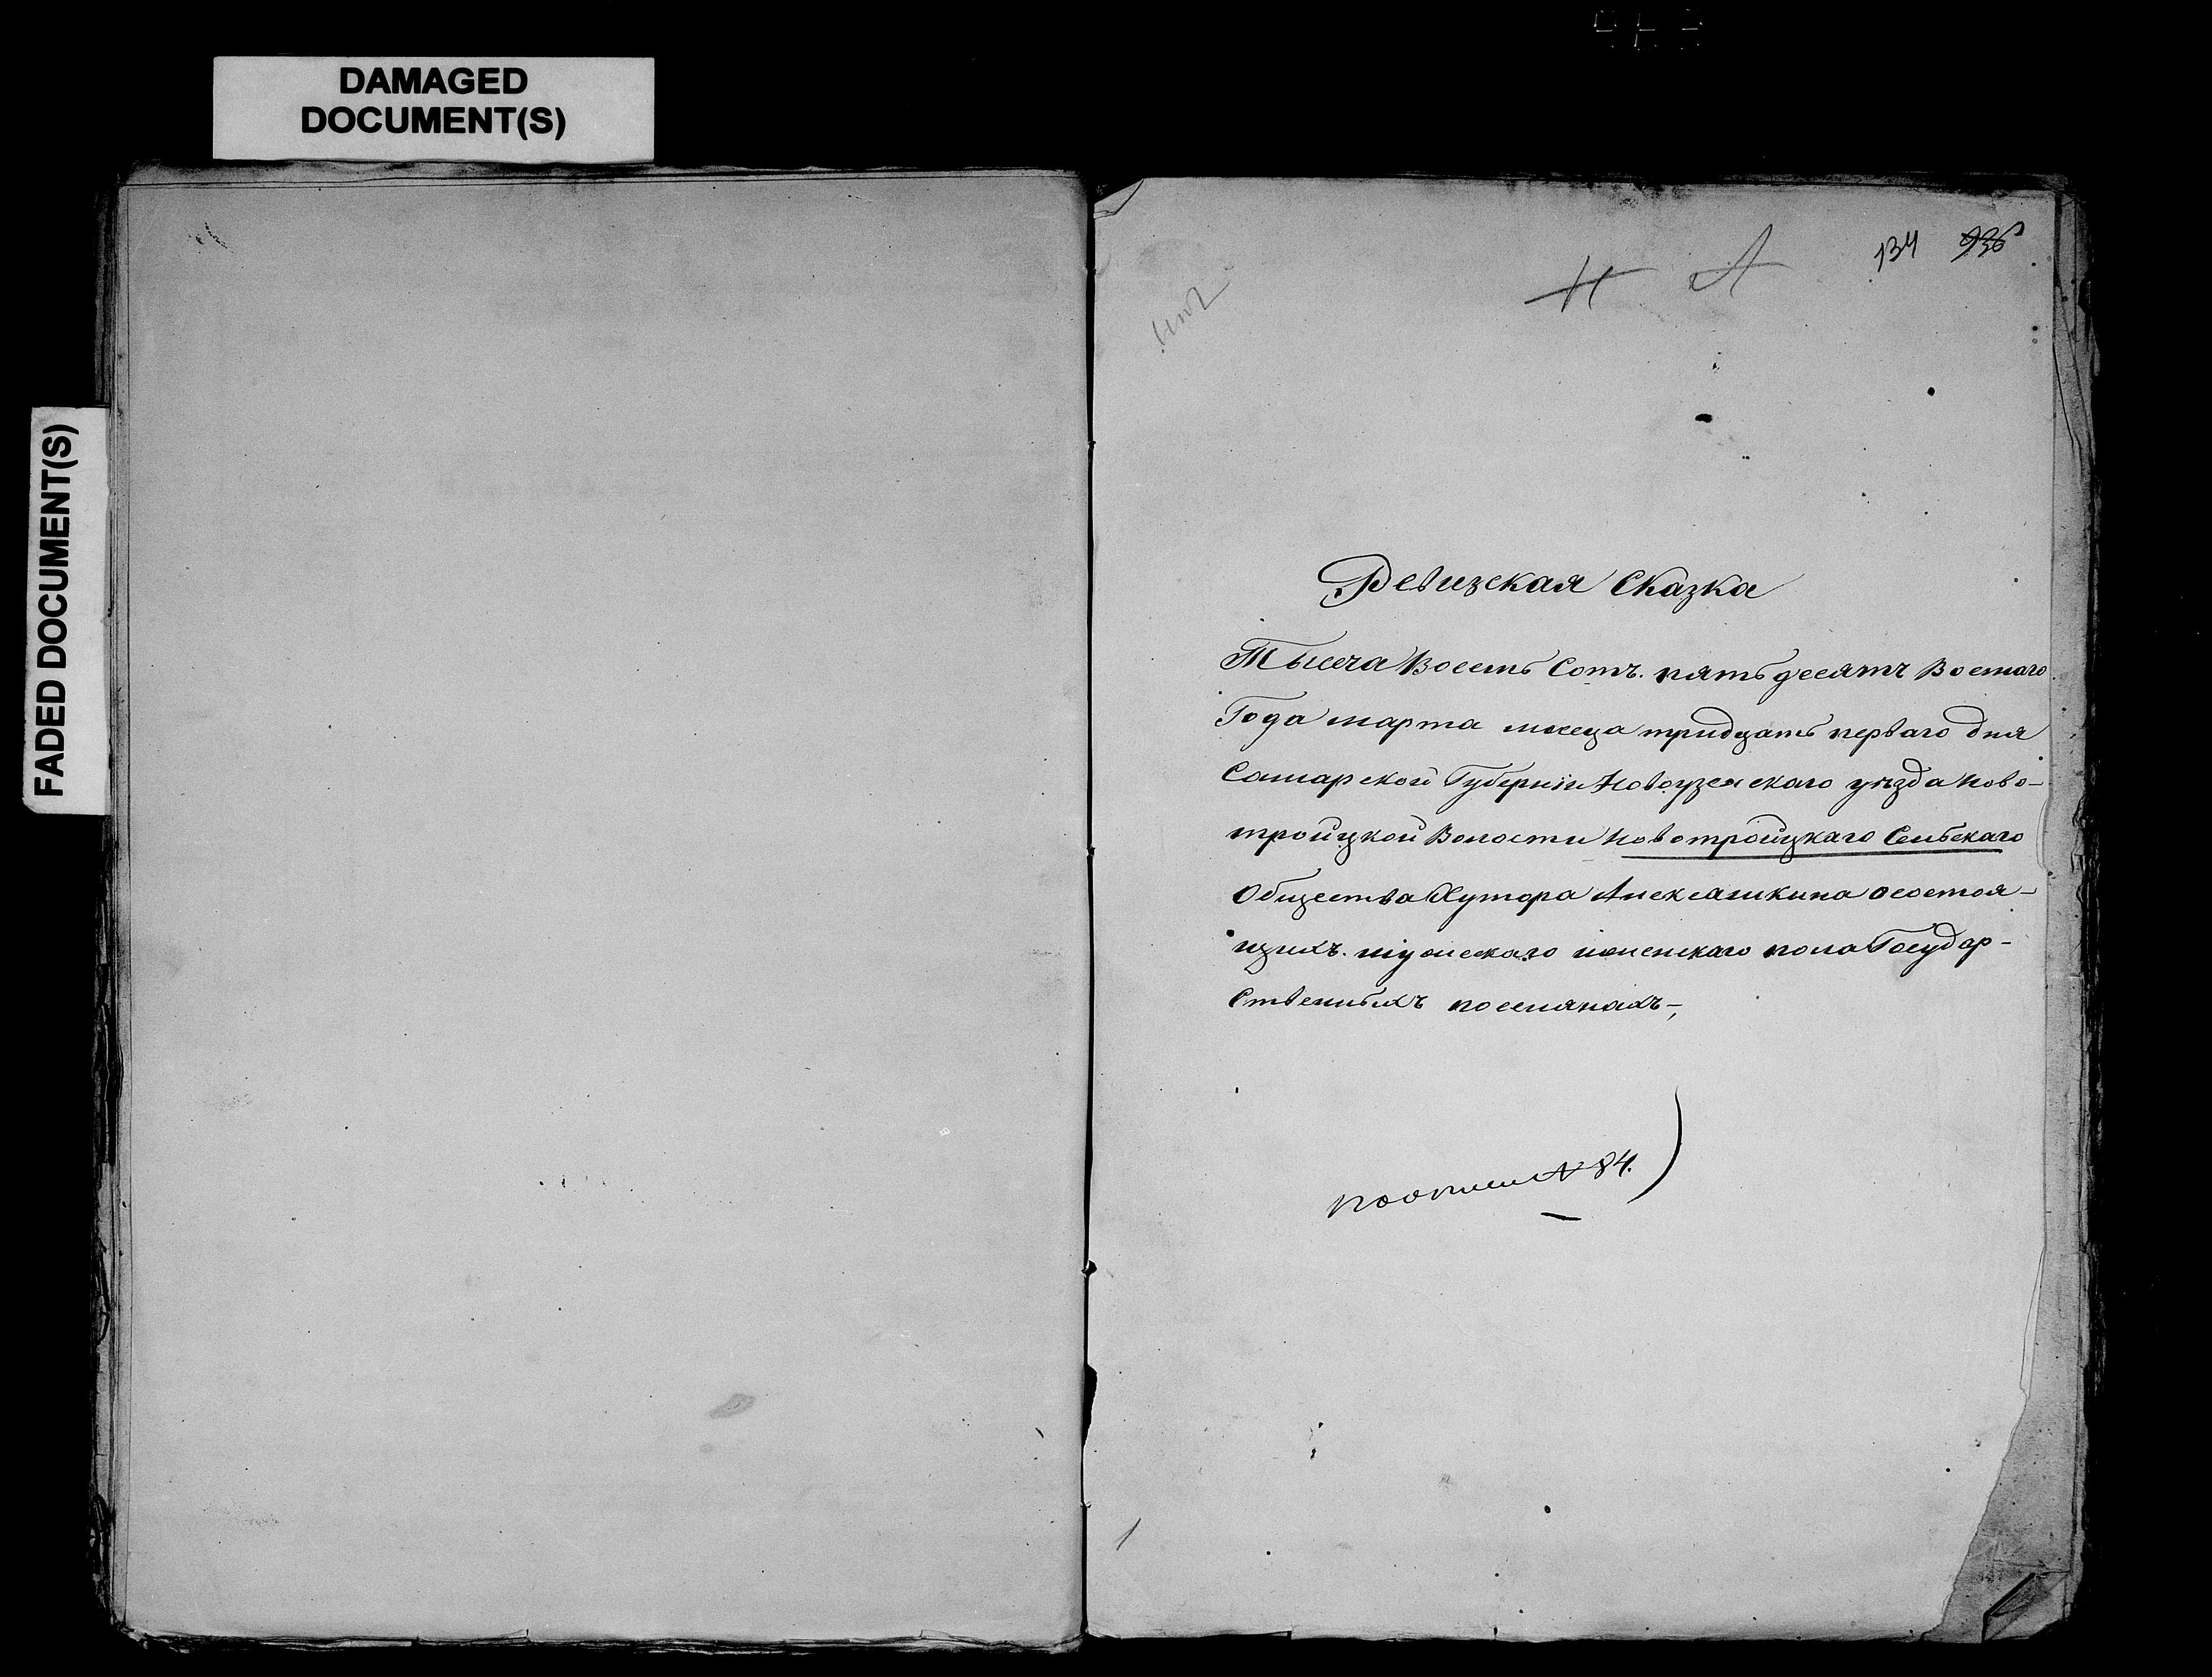 DAMAGED
DOCUMENT(S)
FADED DOCUMENT(S)
134 936
Н А
Ревизская Сказка
Тысеча Восемь Сотъ. пятьдесятъ Восмаго
Года марта месеца тридцать перваго дня
Самарской Губернiи Новоузенскаго уѣзда Ново-
троицкой Волости Новотроицкаго Сельскаго
Общества Хутора Алексашкина осостоя-
щихъ. мужескаго женскаго пола Государ-
Ственныхъ поселянахъ-,
по описи № 84.
1